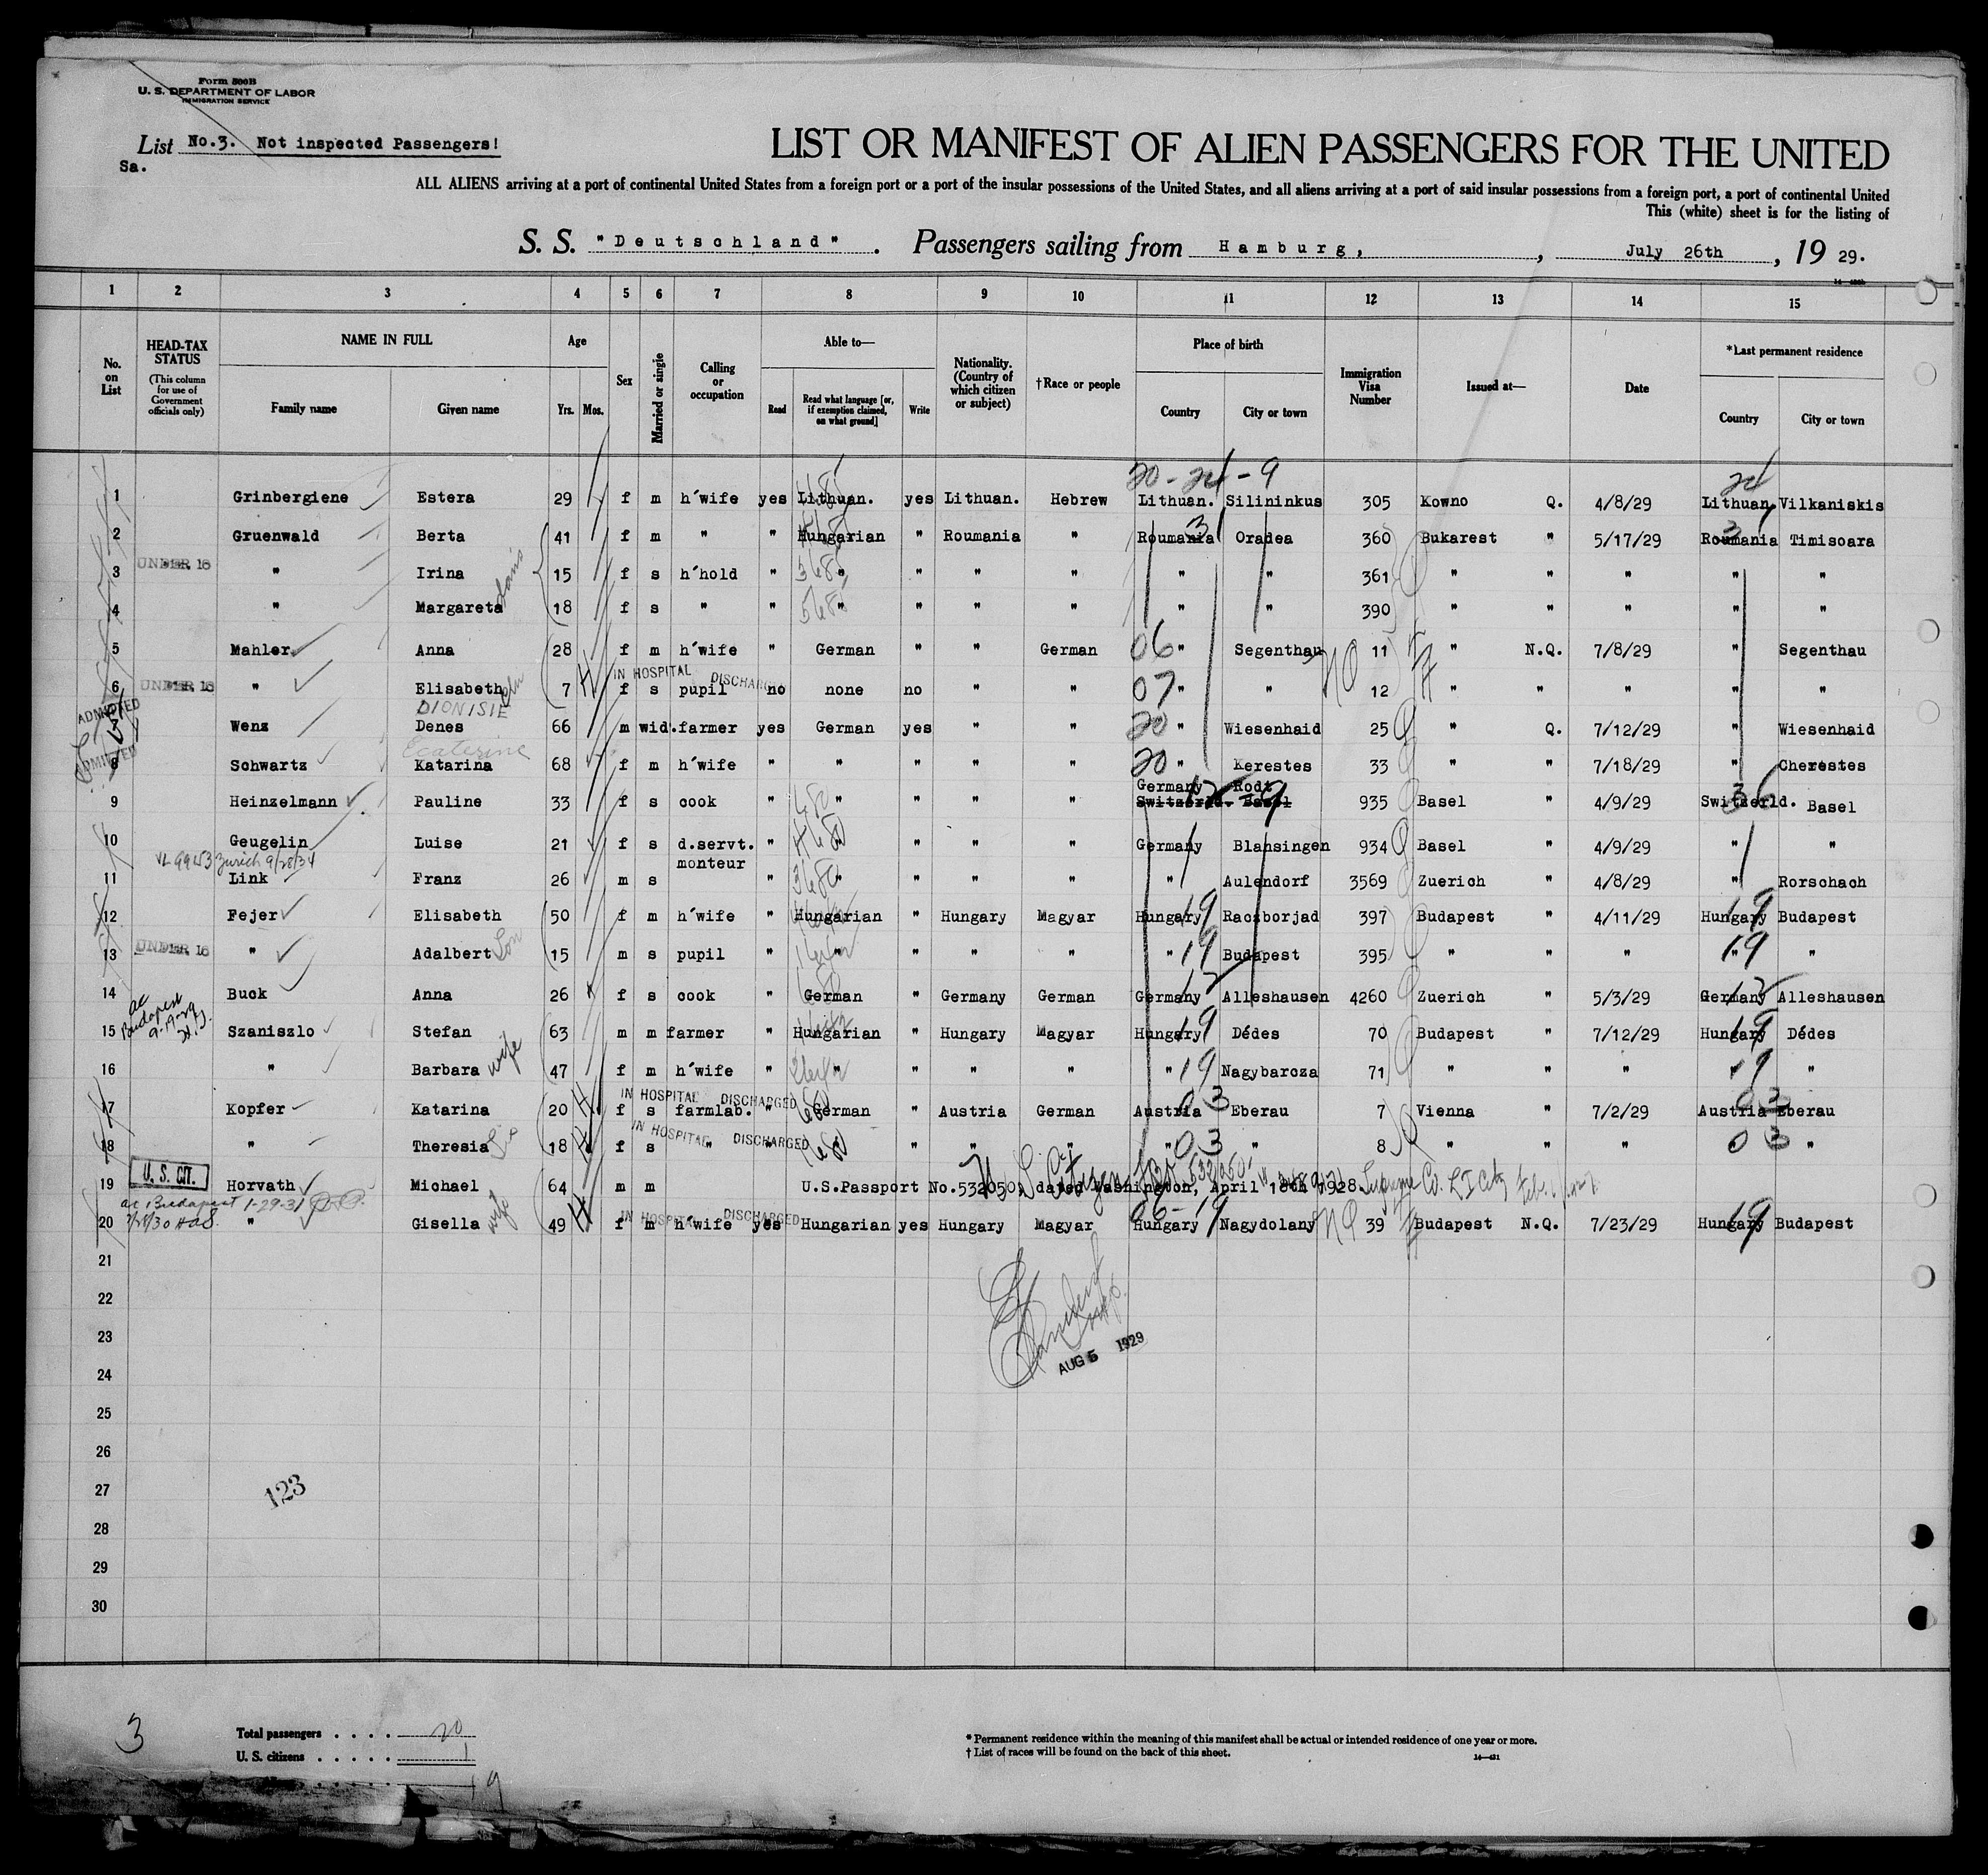 Form 500B
U. S. DEPARTMENT OF LABOR
IMMIGRATION SERVICE
List No.3. Not inspected Passengers!
Sa.
LIST OR MANIFEST OF ALIEN PASSENGERS FOR THE UNITED
ALL ALIENS arriving at a port of continental United States from a foreign port or a port of the insular possessions of the United States, and all aliens arriving at a port of said insular possessions from a foreign port, a port of continental United
This (white) sheet is for the listing of
S. S. "Deutschland". Passengers sailing from Hamburg, , July 26th , 19 29.
1 2 3 4 5 6 7 8 9 10 11 12 13 14 15
No. on List
HEAD-TAX STATUS (This column for use of Government officials only)
NAME IN FULL
Family name Given name
Age
Yrs. Mos.
Sex
Married or single
Calling or occupation
Able to—
Read Read what language [or, if exemption claimed, on what ground] Write
Nationality. (Country of which citizen or subject)
†Race or people
Place of birth
Country City or town
Immigration Visa Number
Issued at—
Date
*Last permanent residence
Country City or town
20-24-9 24
1 Grinbergiene Estera 29 f m h'wife yes Lithuan. yes Lithuan. Hebrew Lithuan. Silininkus 305 Kowno Q. 4/8/29 Lithuan. Vilkaniskis
2 Gruenwald Berta 41 f m " " Hungarian " Roumania " Roumania 3 Oradea 360 Bukarest " 5/17/29 Roumania 3 Timisoara
3 UNDER 16 " Irina 15 f s h'hold " " " " " " " 361 " " " " "
4 " Margareta 18 f s " " " " " " " " 390 " " " " "
5 Mahler Anna 28 f m h'wife " German " " German 06 " Segenthau 11 " N.Q. 7/8/29 " Segenthau
IN HOSPITAL DISCHARGED
6 UNDER 16 " Elisabeth 7 f s pupil no none no " " 07 " " NQ 12 " " " " "
DIONISIE
ADMITTED
7 Wenz Denes 66 m wid. farmer yes German yes " " 20 " Wiesenhaid 25 " Q. 7/12/29 " Wiesenhaid
Ecaterine
ADMITTED
8 Schwartz Katarina 68 f m h'wife " " " " " 20 " Kerestes 33 " " 7/18/29 " Cherestes
Germany Rodt
9 Heinzelmann Pauline 33 f s cook " " " " " Switzerld. Basel 935 Basel " 4/9/29 Switzerld. Basel
10 Geugelin Luise 21 f s d.servt. " " " " " Germany Blansingen 934 Basel " 4/9/29 " "
Zurich 9/28/34 monteur
11 Link Franz 26 m s " " " " " " Aulendorf 3569 Zuerich " 4/8/29 " Rorschach
12 Fejer Elisabeth 50 f m h'wife " Hungarian " Hungary Magyar Hungary 19 Racsborjad 397 Budapest " 4/11/29 Hungary 19 Budapest
13 UNDER 16 " Adalbert Son 15 m s pupil " " " " " " 19 Budapest 395 " " " " 19 "
14 Buck Anna 26 f s cook " German " Germany German Germany Alleshausen 4260 Zuerich " 5/3/29 Germany Alleshausen
Budapest
15 Szaniszlo Stefan 63 m m farmer " Hungarian " Hungary Magyar Hungary 19 Dédes 70 Budapest " 7/12/29 Hungary 19 Dédes
16 " Barbara wife 47 f m h'wife " " " " " " 19 Nagybarcza 71 " " " " 19 "
IN HOSPITAL DISCHARGED
17 Kopfer Katarina 20 f s farmlab. " German " Austria German Austria 03 Eberau 7 Vienna " 7/2/29 Austria 03 Eberau
IN HOSPITAL DISCHARGED
18 " Theresia Sis 18 f s " " " " " " 03 " 8 " " " " 03 "
U. S. CIT.
19 Horvath Michael 64 m m U.S.Passport No.532050, dated Washington, April 18th 1928.
U.S. Citizen
Budapest 1-29-31
IN HOSPITAL DISCHARGED
20 " Gisella wife 49 f m h'wife yes Hungarian yes Hungary Magyar 06-19 Hungary Nagydolany NQ 39 Budapest N.Q. 7/23/29 Hungary 19 Budapest
21
22
23
AUG 5 1929
24
25
26
27
123
28
29
30
3
Total passengers . . . . 20
U. S. citizens . . . . . 1
19
* Permanent residence within the meaning of this manifest shall be actual or intended residence of one year or more.
† List of races will be found on the back of this sheet.